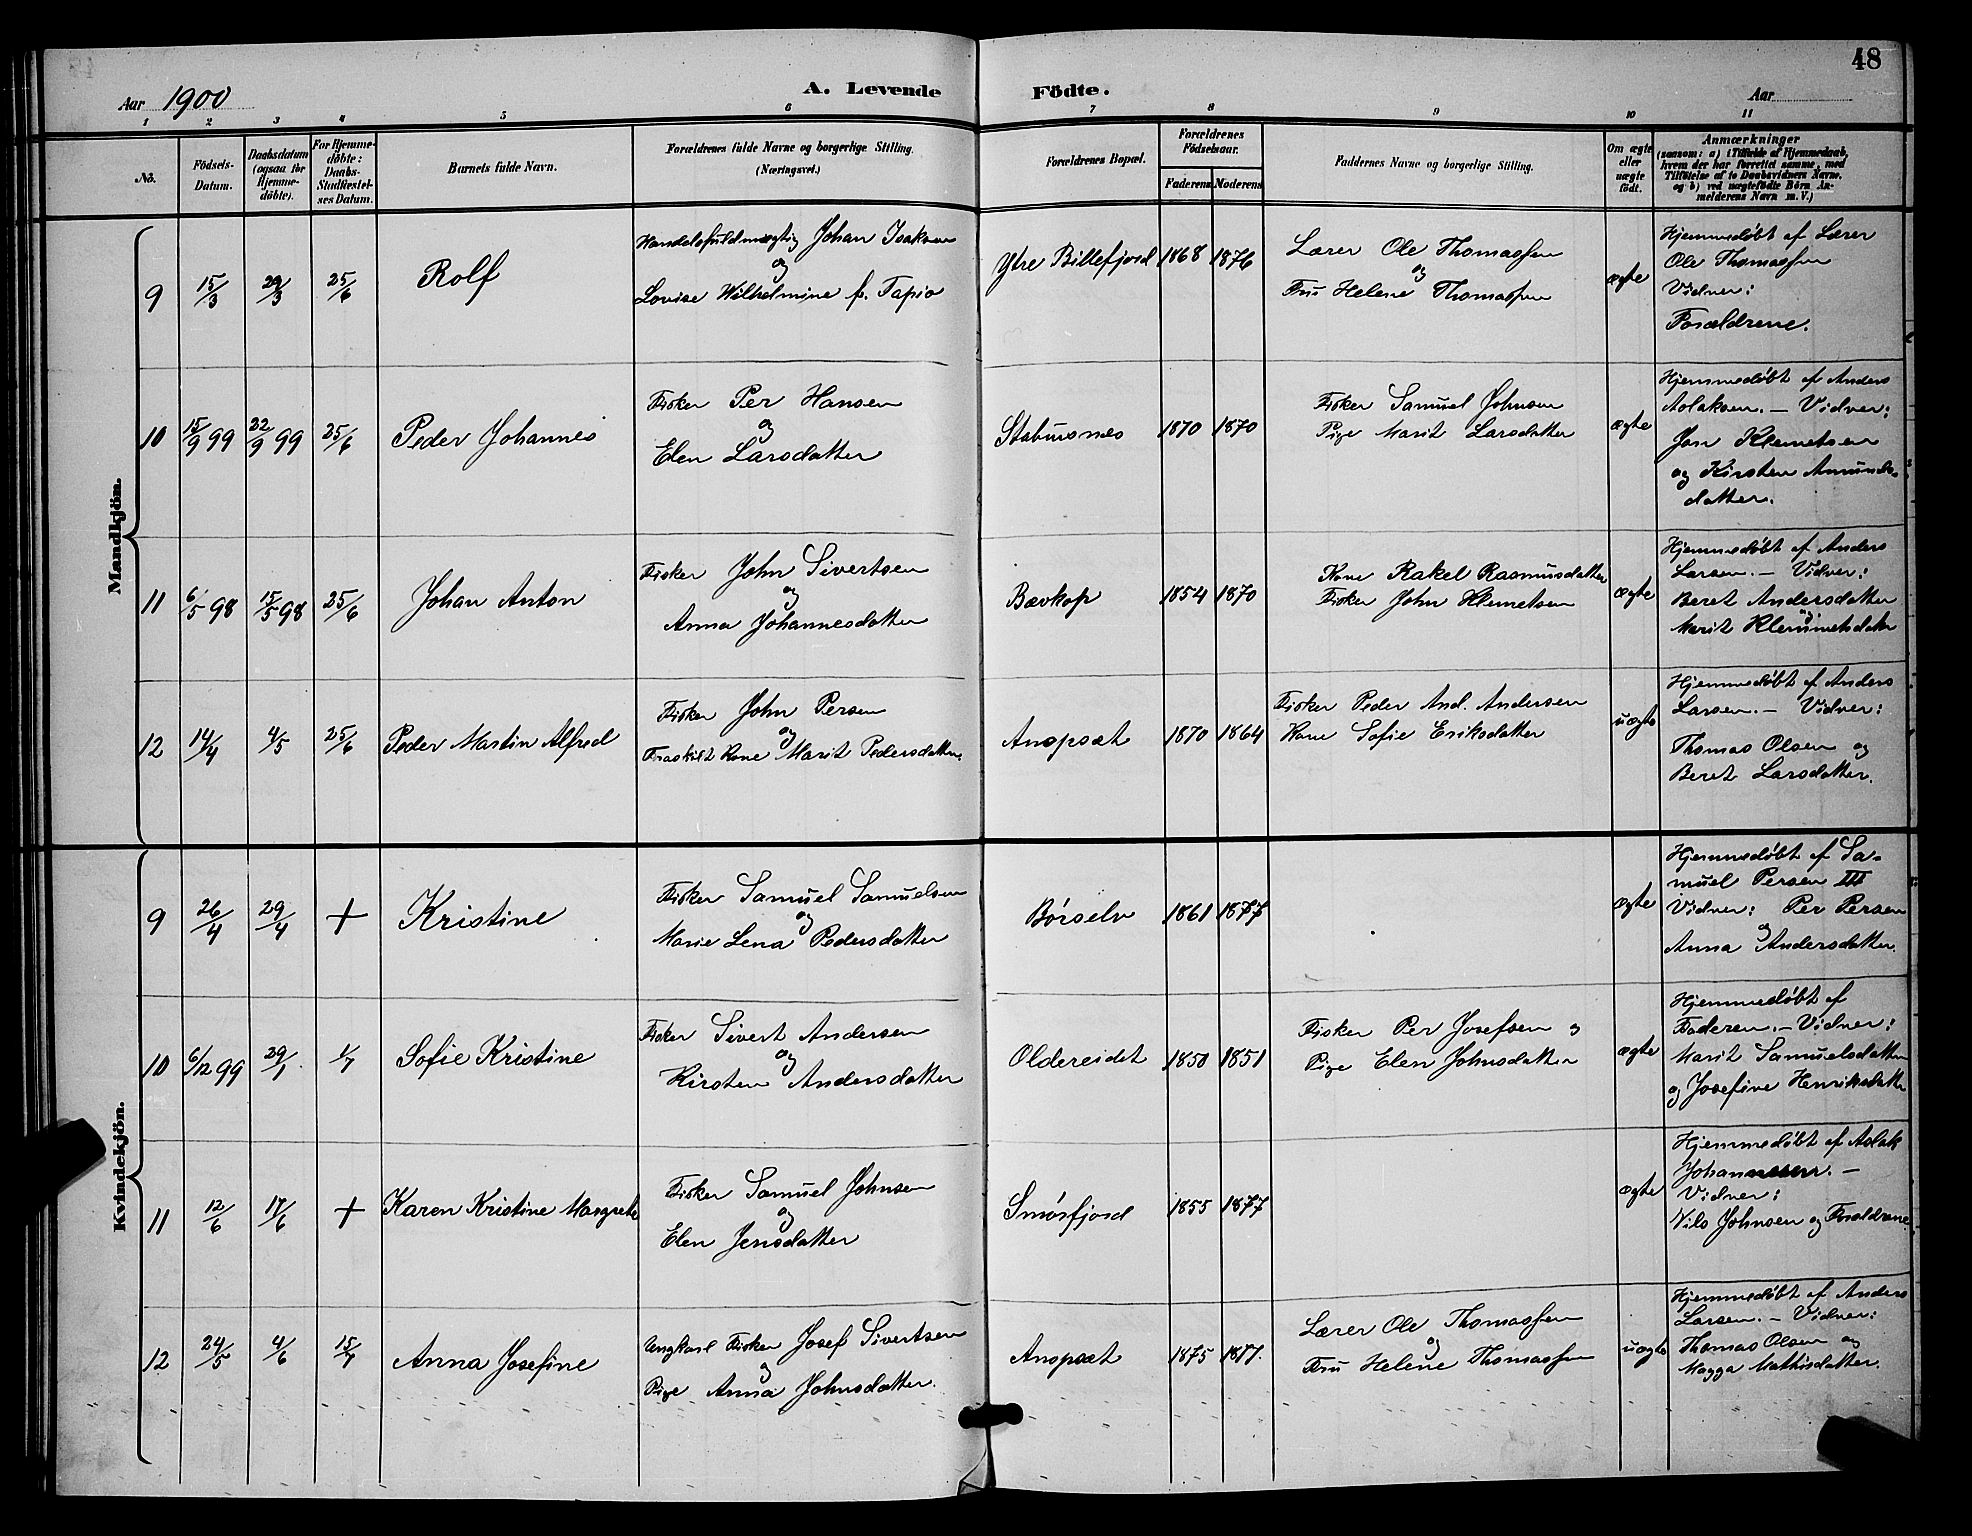 48
Aar 1900
A. Levende Födte.
Aar
1 2 3 4 5 6 7 8 9 10 11
No.
Födsels-
Datum.
Daabsdatum
(ogsaa for
Hjemme-
döbte).
For Hjemme-
döbte:
Daabs-
Stadfæstel-
ses Datum.
Barnets fulde Navn.
Forældrenes fulde Navne og borgerlige Stilling.
(Næringsvei.)
Forældrenes Bopæl.
Forældrenes
Födselsaar.
Faderens Moderens
Faddernes Navne og borgerlige Stilling.
Om ægte
eller
uægte
födt.
Anmærkninger
(saasom: a) i Tilfælde af Hjemmedaab,
hvem der har forrettet samme, med
Tilföielse af to Daabsvidners Navne,
og b) ved uægtefödte Börn An-
melderens Navn m. V.)
Mandkjön.
9 15/3 29/3 25/6 Rolf
Handelsfuldmægtig Johan Isaksen
og
Lovise Wilhelmine f. Tapio
Ytre Billefjord 1868 1876
Lærer Ole Thomassen
og
Fru Helene Thomassen
ægte
Hjemmedøbt af Lærer
Ole Thomassen
Vidner:
Forældrene.
10 15/9 99 22/9 99 25/6 Peder Johannes
Fisker Per Hansen
og
Elen Larsdatter
Stabursnes 1870 1870
Fisker Samuel Johnsen
Pige Marit Larsdatter
ægte
Hjemmedøbt af Anders
Aslaksen. – Vidner:
Jon Klemetsen
og Kirsten Amunds-
datter.
11 6/5 98 15/5 98 25/6 Johan Anton
Fisker John Sivertsen
og
Anna Johannesdatter
Bævkop 1854 1870
Kone Rakel Rasmusdatter
Fisker John Klemetsen
ægte
Hjemmedøbt af Anders
Larsen. – Vidner:
Beret Andersdatter
og
Marit Klemmetsdatter
12 14/4 4/5 25/6 Peder Martin Alfred
Fisker John Persen
og
Fraskilt Kone Marit Pedersdatter.
Anopsæt 1870 1864
Fisker Peder And. Andersen
Kone Sofie Eriksdatter
uægte
Hjemmedøbt af Anders
Larsen. – Vidner:
Thomas Olsen og
Beret Larsdatter.
Kvindekjön.
9 26/4 29/4 + Kristine
Fisker Samuel Samuelsen
og
Marie Lena Pedersdatter
Børselv 1861 1877
ægte
Hjemmedøbt af Sa-
muel Persen III
Vidner: Per Persen
og
Anna Andersdatter.
10 6/12 99 29/1 1/7 Sofie Kristine
Fisker Sivert Andersen
og
Kirsten Andersdatter
Oldereidet 1850 1851
Fisker Per Josefsen og
Pige Elen Johnsdatter
ægte
Hjemmedøbt af
Faderen. – Vidner:
Marit Samuelsdatter
og Josefine Henriksdatter
11 12/6 17/6 + Karen Kristine Margrete
Fisker Samuel Johnsen
og
Elen Jensdatter
Smørfjord 1855 1877
ægte
Hjemmedøbt af Aslak
Johannesen. –
Vidner:
Nils Johnsen og Forældrene.
12 24/5 4/6 15/7 Anna Josefine
Ungkarl Fisker Josef Sivertsen
og
Pige Anna Johnsdatter.
Anopsæt 1875 1877.
Lærer Ole Thomassen
og
Fru Helene Thomassen
uægte
Hjemmedøbt af Anders
Larsen. – Vidner:
Thomas Olsen og
Magga Mathisdatter.